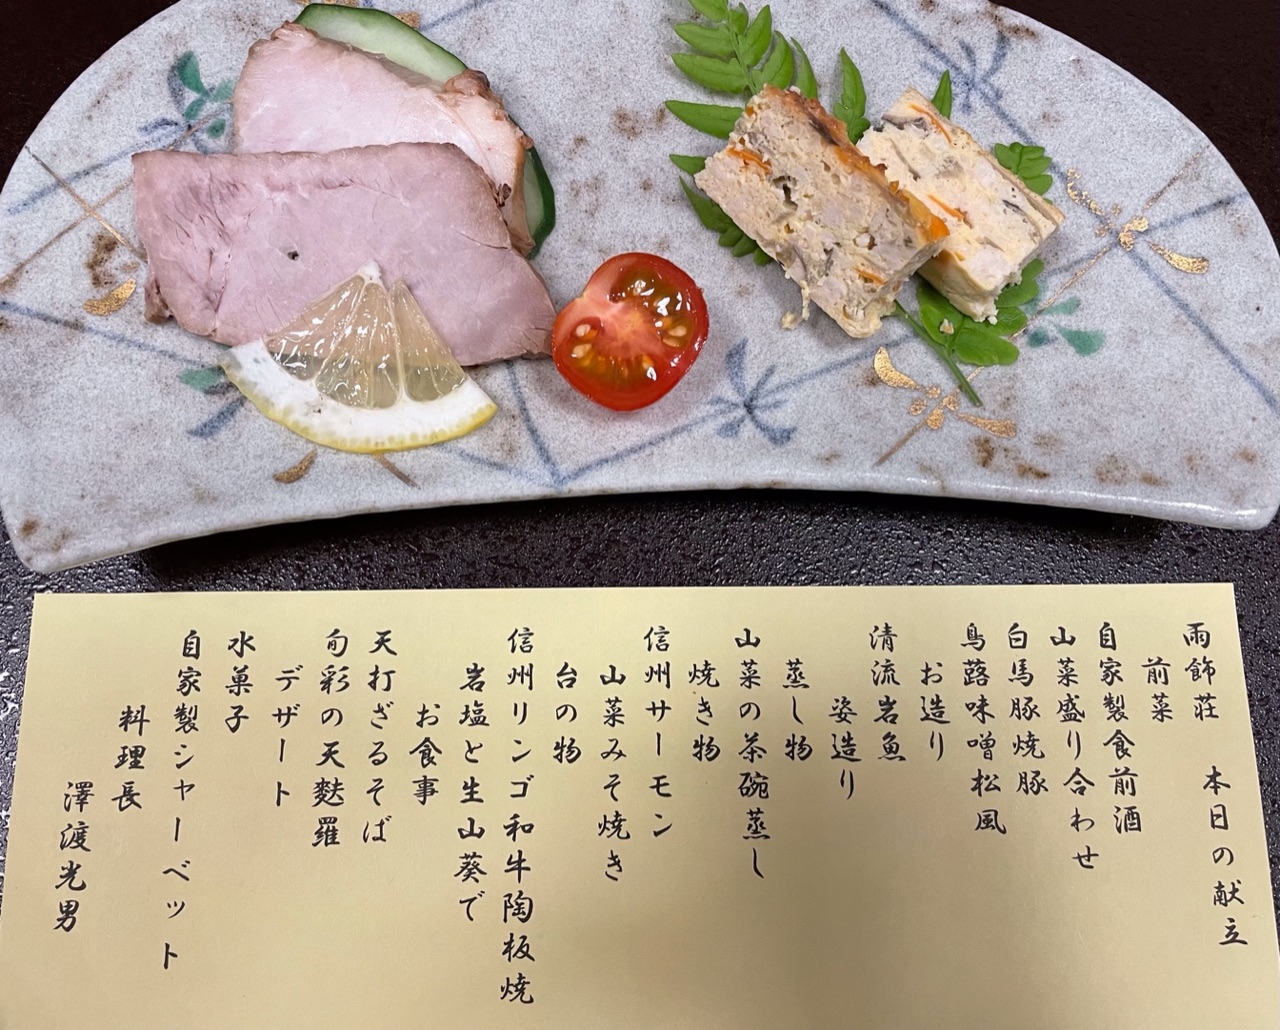 雨飾荘 本日の献立
前菜
自家製食前酒
山菜盛り合わせ
白馬豚焼豚
鳥蕗味噌松風
お造り
清流岩魚
姿造り
蒸し物
山菜の茶碗蒸し
焼き物
信州サーモン
山菜みそ焼き
台の物
信州リンゴ和牛陶板焼
岩塩と生山葵で
お食事
天打ざるそば
旬彩の天麩羅
デザート
水菓子
自家製シャーベット
料理長
澤渡光男